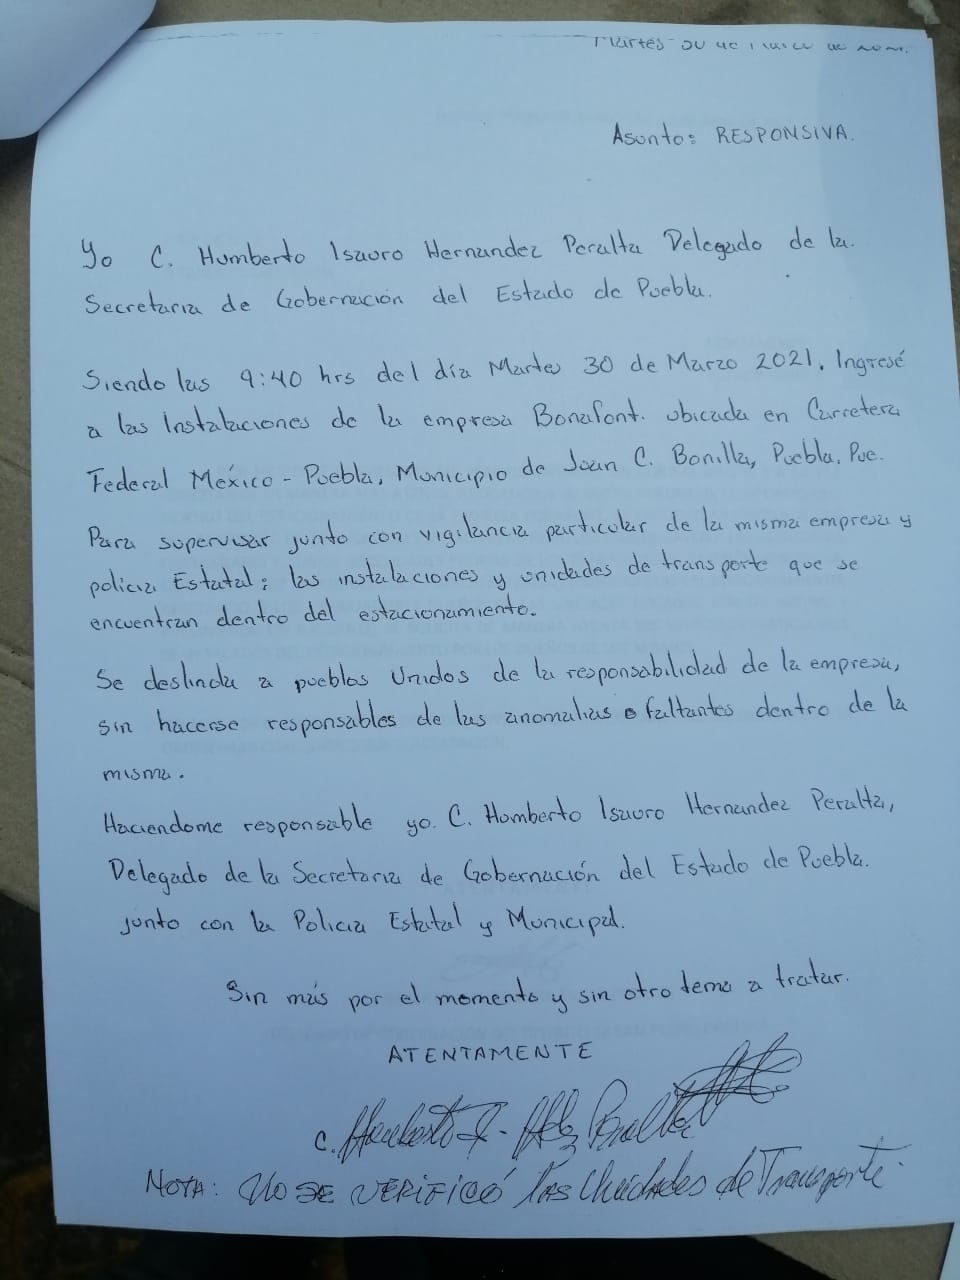 Martes 30 de Marzo de
Asunto: RESPONSIVA.
Yo C. Humberto Isauro Hernandez Peralta Delegado de la.
Secretaria de Gobernación del Estado de Puebla.
Siendo las 9:40 hrs del día Martes 30 de Marzo 2021. Ingresé
a las Instalaciones de la empresa Bonafont. ubicada en Carretera
Federal México - Puebla, Municipio de Juan C. Bonilla, Puebla, Pue.
Para supervisar junto con vigilancia particular de la misma empresa y
policia Estatal; las instalaciones y unidades de transporte que se
encuentran dentro del estacionamiento.
Se deslinda a pueblos Unidos de la responsabilidad de la empresa,
sin hacerse responsables de las anomalias o faltantes dentro de la
misma.
Haciendome responsable yo. C. Humberto Isauro Hernandez Peralta,
Delegado de la Secretaria de Gobernación del Estado de Puebla.
junto con la Policia Estatal y Municipal.
Sin más por el momento y sin otro tema a tratar.
ATENTAMENTE
C. Humberto I. Hdz Peralta
NOTA: No SE VERIFICÓ las Unidades de Transporte.